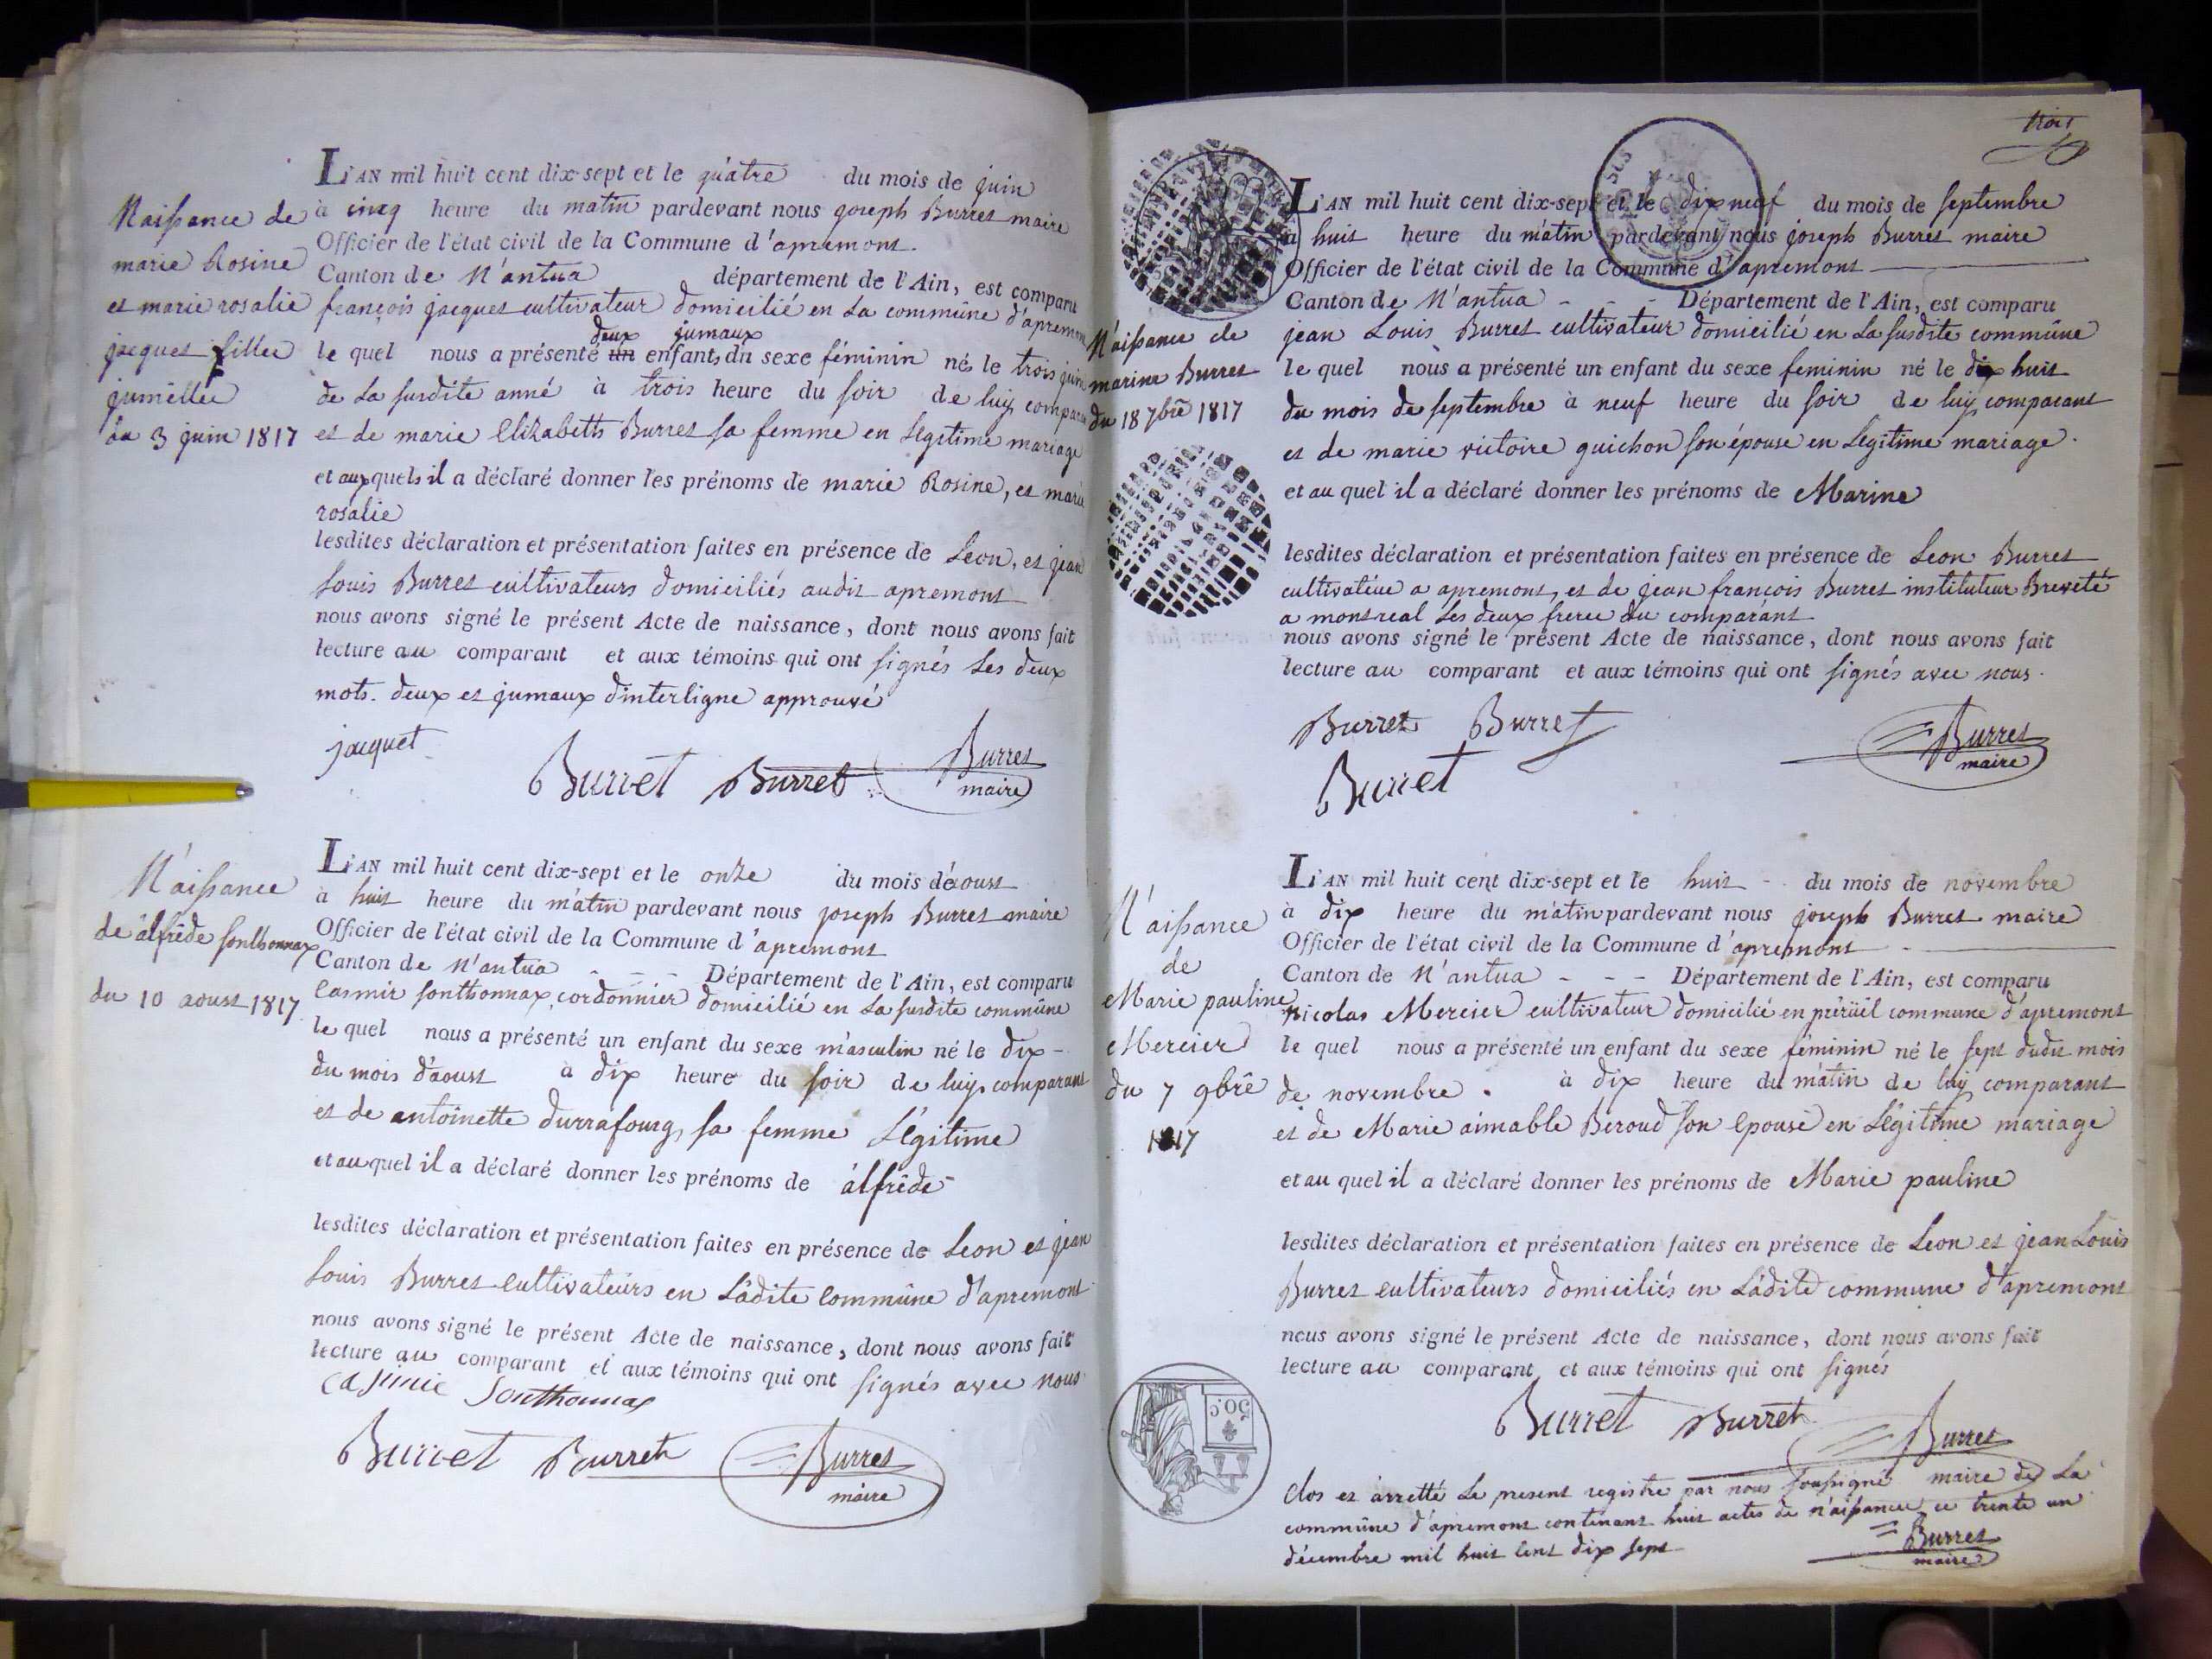 Naissance de
marie Rosine
et marie rosalie
jacquet filles
jumelles
du 3 juin 1817
L'AN mil huit cent dix-sept et le quatre du mois de juin
à cinq heure du matin pardevant nous joseph Burret maire
Officier de l'état civil de la Commune d'apremont.
Canton de Nantua département de l'Ain, est comparu
françois jacquet cultivateur domicilié en La commune d'apremont
deux jumaux
le quel nous a présenté un enfants du sexe féminin nés le trois juin
de La susdite anné à trois heure du soir de luy comparant
et de marie Elizabeth Burret sa femme en Légitime mariage
et auxquels il a déclaré donner les prénoms de marie Rosine, et marie
rosalie
lesdites déclaration et présentation faites en présence de Leon, et jean
Louis Burret cultivateurs domiciliés audit apremont
nous avons signé le présent Acte de naissance, dont nous avons fait
lecture au comparant et aux témoins qui ont signés Les deux
mots. deux et jumaux d'interligne approuvé
jacquet
Burret Burret Burret
maire
Naissance
de alfrède sonthonnax
du 10 aoust 1817
L'AN mil huit cent dix-sept et le onze du mois d'aoust
à huit heure du matin pardevant nous joseph Burret maire
Officier de l'état civil de la Commune d'apremont
Canton de Nantua - - - Département de l'Ain, est comparu
Casmir sonthonnax, cordonnier domicilié en La susdite commune
le quel nous a présenté un enfant du sexe masculin né le dix -
du mois d'aoust à dix heure du soir de luy comparant
et de antoinette durrafourg, sa femme Légitime
et au quel il a déclaré donner les prénoms de alfrède
lesdites déclaration et présentation faites en présence de Leon et jean
Louis Burret cultivateurs en Ladite commune d'apremont
nous avons signé le présent Acte de naissance, dont nous avons fait
lecture au comparant et aux témoins qui ont signés avec nous
Casimir Sonthonnax
Burret Burret Burret
maire
trois
Naissance de
marine Burret
du 18 7bre 1817
L'AN mil huit cent dix-sept et le dix neuf du mois de septembre
à huit heure du matin pardevant nous joseph Burret maire
Officier de l'état civil de la Commune d'apremont
Canton de Nantua - - - Département de l'Ain, est comparu
jean Louis Burret cultivateur domicilié en La susdite commune
le quel nous a présenté un enfant du sexe feminin né le dix huit
du mois de septembre à neuf heure du soir de luy comparant
et de marie victoire guichon son épouse en Légitime mariage.
et au quel il a déclaré donner les prénoms de Marine
lesdites déclaration et présentation faites en présence de Leon Burret
cultivateur a apremont, et de jean françois Burret instituteur Breveté
a montreal Les deux freres du comparant
nous avons signé le présent Acte de naissance, dont nous avons fait
lecture au comparant et aux témoins qui ont signés avec nous.
Burret Burret Burret
maire
Burret
Naissance
de
Marie pauline
Mercier
du 7 9bre
1817
L'AN mil huit cent dix-sept et le huit - du mois de novembre
à dix heure du matin pardevant nous joseph Burret maire
Officier de l'état civil de la Commune d'apremont
Canton de Nantua - - - Département de l'Ain, est comparu
Nicolas Mercier cultivateur domicilié en commune d'apremont
le quel nous a présenté un enfant du sexe féminin né le sept dudit mois
de novembre. à dix heure du matin de luy comparant
et de Marie aimable Beroud son epouse en Légitime mariage
et au quel il a déclaré donner les prénoms de Marie pauline
lesdites déclaration et présentation faites en présence de Leon et jean Louis
Burret cultivateurs domiciliés en Ladite commune d'apremont
nous avons signé le présent Acte de naissance, dont nous avons fait
lecture au comparant et aux témoins qui ont signés
50 c
Burret Burret Burret
Clos et arretté Le present registre par nous soussigné maire de La
commune d'apremont contenant huit actes de naissances ce trente un
décembre mil huit Cent dix sept
Burret
maire